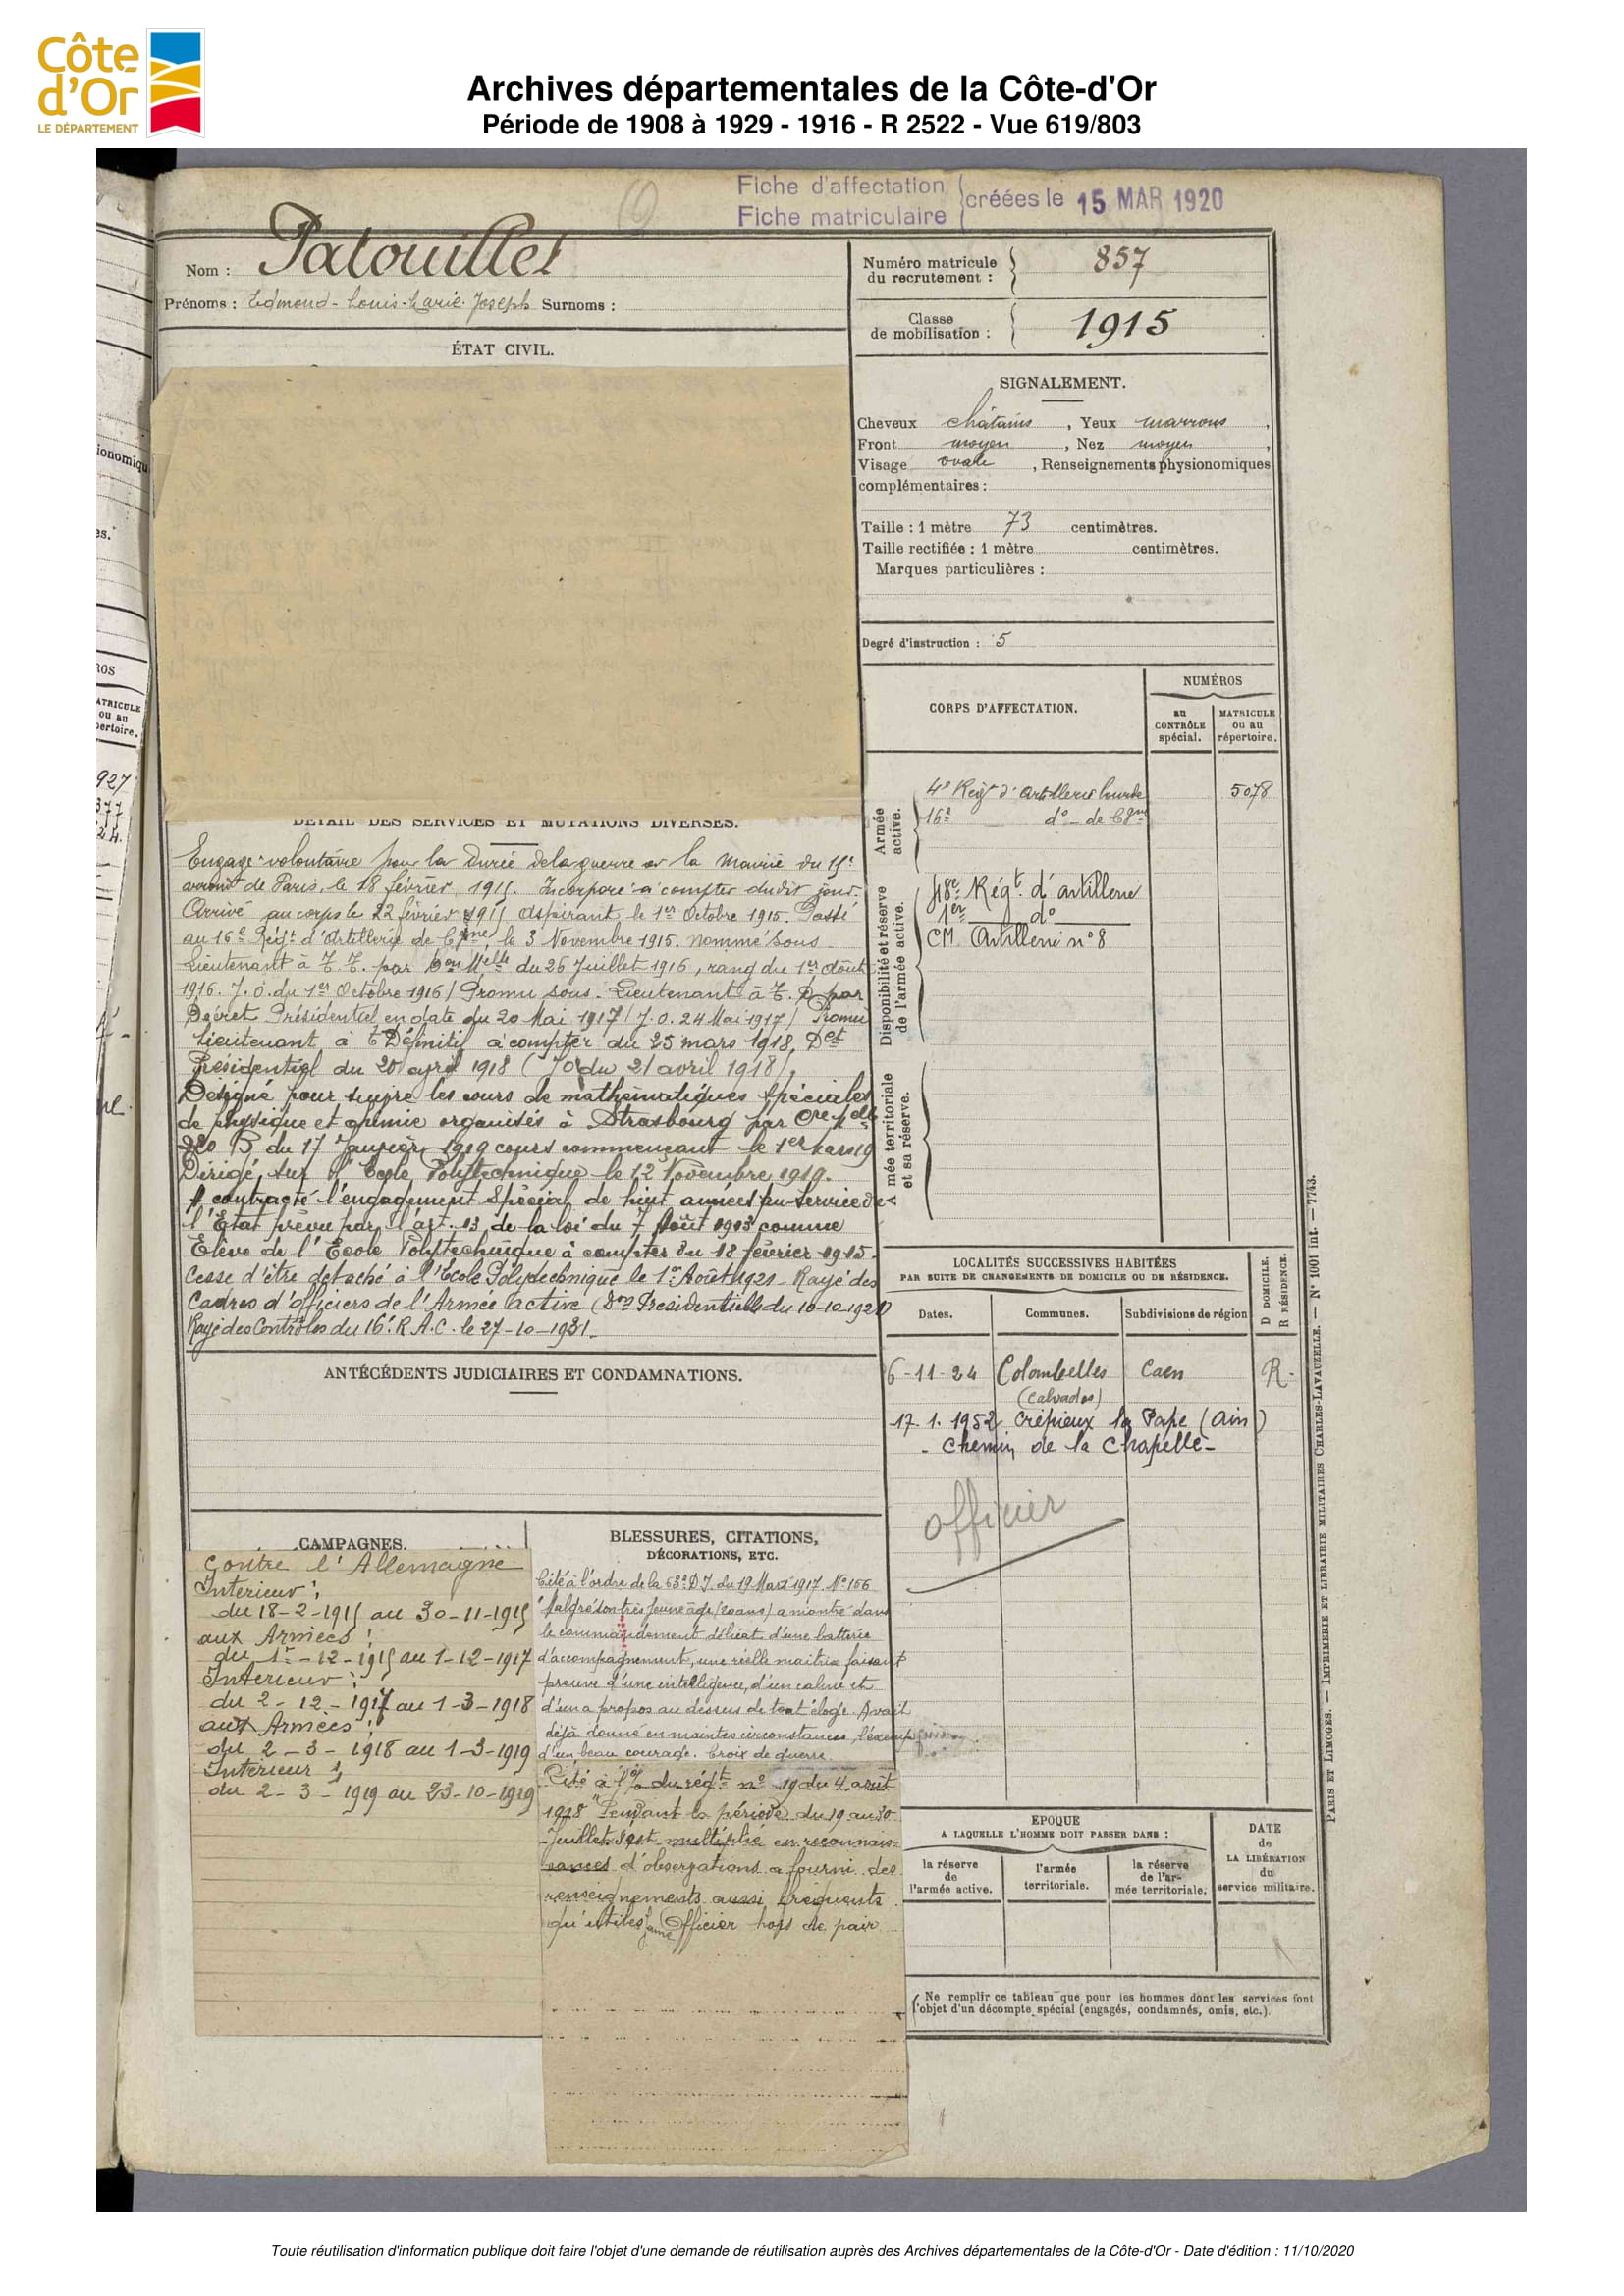 Côte
d'Or
LE DÉPARTEMENT
Archives départementales de la Côte-d'Or
Période de 1908 à 1929 - 1916 - R 2522 - Vue 619/803
Fiche d'affectation
Fiche matriculaire
créées le 15 MAR 1920
Nom : Patouillet
Prénoms : Edmond-Louis-Marie-Joseph Surnoms :
Numéro matricule
du recrutement : 857
Classe
de mobilisation : 1915
ÉTAT CIVIL.
SIGNALEMENT.
Cheveux châtains, Yeux marrons,
Front moyen, Nez moyen,
Visage ovale, Renseignements physionomiques
complémentaires :
Taille : 1 mètre 73 centimètres.
Taille rectifiée : 1 mètre centimètres.
Marques particulières :
Degré d'instruction : 5
CORPS D'AFFECTATION.
NUMÉROS
au
CONTRÔLE
spécial.
MATRICULE
ou au
répertoire.
Armée
active.
4e Régt d'Artillerie lourde 5078
16e do de Cgne
Disponibilité et réserve
de l'armée active.
48e Régt d'artillerie
1er do
CM Artillerie n° 8
A mée territoriale
et sa réserve.
DÉTAIL DES SERVICES ET MUTATIONS DIVERSES.
Engagé volontaire pour la durée de la guerre à la mairie du
arront de Paris, le 18 février 1915. Incorporé à compter dudit jour.
Arrivé au corps le 22 février 1915 Aspirant le 1er Octobre 1915. Passé
au 16e Régt d'Artillerie de Cgne, le 3 Novembre 1915. nommé Sous-
Lieutenant à T.T. par Don Melle du 26 Juillet 1916, rang du 1er Août
1916. J.O. du 1er Octobre 1916 / Promu Sous-Lieutenant à T.D. par
Décret Présidentiel en date du 20 Mai 1917 / J.O. 24 Mai 1917 / Promu
Lieutenant à t Définitif à compter du 25 mars 1918, Det
Présidentiel du 20 avril 1918 (JO du 21 avril 1918).
Désigné pour suivre les cours de mathématiques Spéciales
de physique et chimie organisés à Strasbourg par
du 17 Janvier 1919 cours commençant le 1er mars 19
Dirigé sur l'Ecole Polytechnique le 12 Novembre 1919.
A contracté l'engagement Spécial de huit années au service de
l'Etat prévu par l'art. 13 de la loi du 7 Août 1913 comme
Elève de l'Ecole Polytechnique à compter du 18 février 1915.
Cesse d'être détaché à l'Ecole Polytechnique le 1er Août 1921 - Rayé des
Cadres d'officiers de l'Armée active (Don Présidentielle du 10-10-1921)
Rayé des Contrôles du 16e R.A.C. le 27-10-1921.
ANTÉCÉDENTS JUDICIAIRES ET CONDAMNATIONS.
LOCALITÉS SUCCESSIVES HABITÉES
PAR SUITE DE CHANGEMENTS DE DOMICILE OU DE RÉSIDENCE.
Dates. Communes. Subdivisions de région
D DOMICILE.
R RÉSIDENCE.
6-11-24 Colombelles Caen R.
(Calvados)
17.1.1952 Crépieux la Pape (Ain)
- Chemin de la Chapelle -
officier
CAMPAGNES.
Contre l'Allemagne
Interieur :
du 18-2-1915 au 30-11-1915
aux Armées :
du 1er-12-1915 au 1-12-1917
Interieur :
du 2-12-1917 au 1-3-1918
aux Armées :
du 2-3-1918 au 1-3-1919
Interieur :
du 2-3-1919 au 23-10-1919
BLESSURES, CITATIONS,
DÉCORATIONS, ETC.
Cité à l'ordre de la 63e D.I. du 19 Mars 1917. N° 156
"Malgré son très jeune âge (20 ans) a montré dans
le commandement délicat d'une batterie
d'accompagnement, une réelle maitrise faisant
preuve d'une intelligence, d'un calme et
d'un à propos au dessus de tout éloge. Avait
déjà donné en maintes circonstances, l'exemple
d'un beau courage. Croix de guerre.
Cité à l'o/ du régt n° 19 du 4 août
1918 "Pendant la période du 19 au 30
Juillet s'est multiplié en reconnais-
sances d'observations a fourni des
renseignements aussi fréquents
qu'utiles. Jeune Officier hors de pair
EPOQUE
A LAQUELLE L'HOMME DOIT PASSER DANS :
la réserve
de
l'armée active.
l'armée
territoriale.
la réserve
de l'ar-
mée territoriale.
DATE
de
LA LIBÉRATION
du
service militaire.
Ne remplir ce tableau que pour les hommes dont les services font
l'objet d'un décompte spécial (engagés, condamnés, omis, etc.).
PARIS ET LIMOGES. — IMPRIMERIE ET LIBRAIRIE MILITAIRES CHARLES-LAVAUZELLE. — N° 1001 int. — 7743.
Toute réutilisation d'information publique doit faire l'objet d'une demande de réutilisation auprès des Archives départementales de la Côte-d'Or - Date d'édition : 11/10/2020